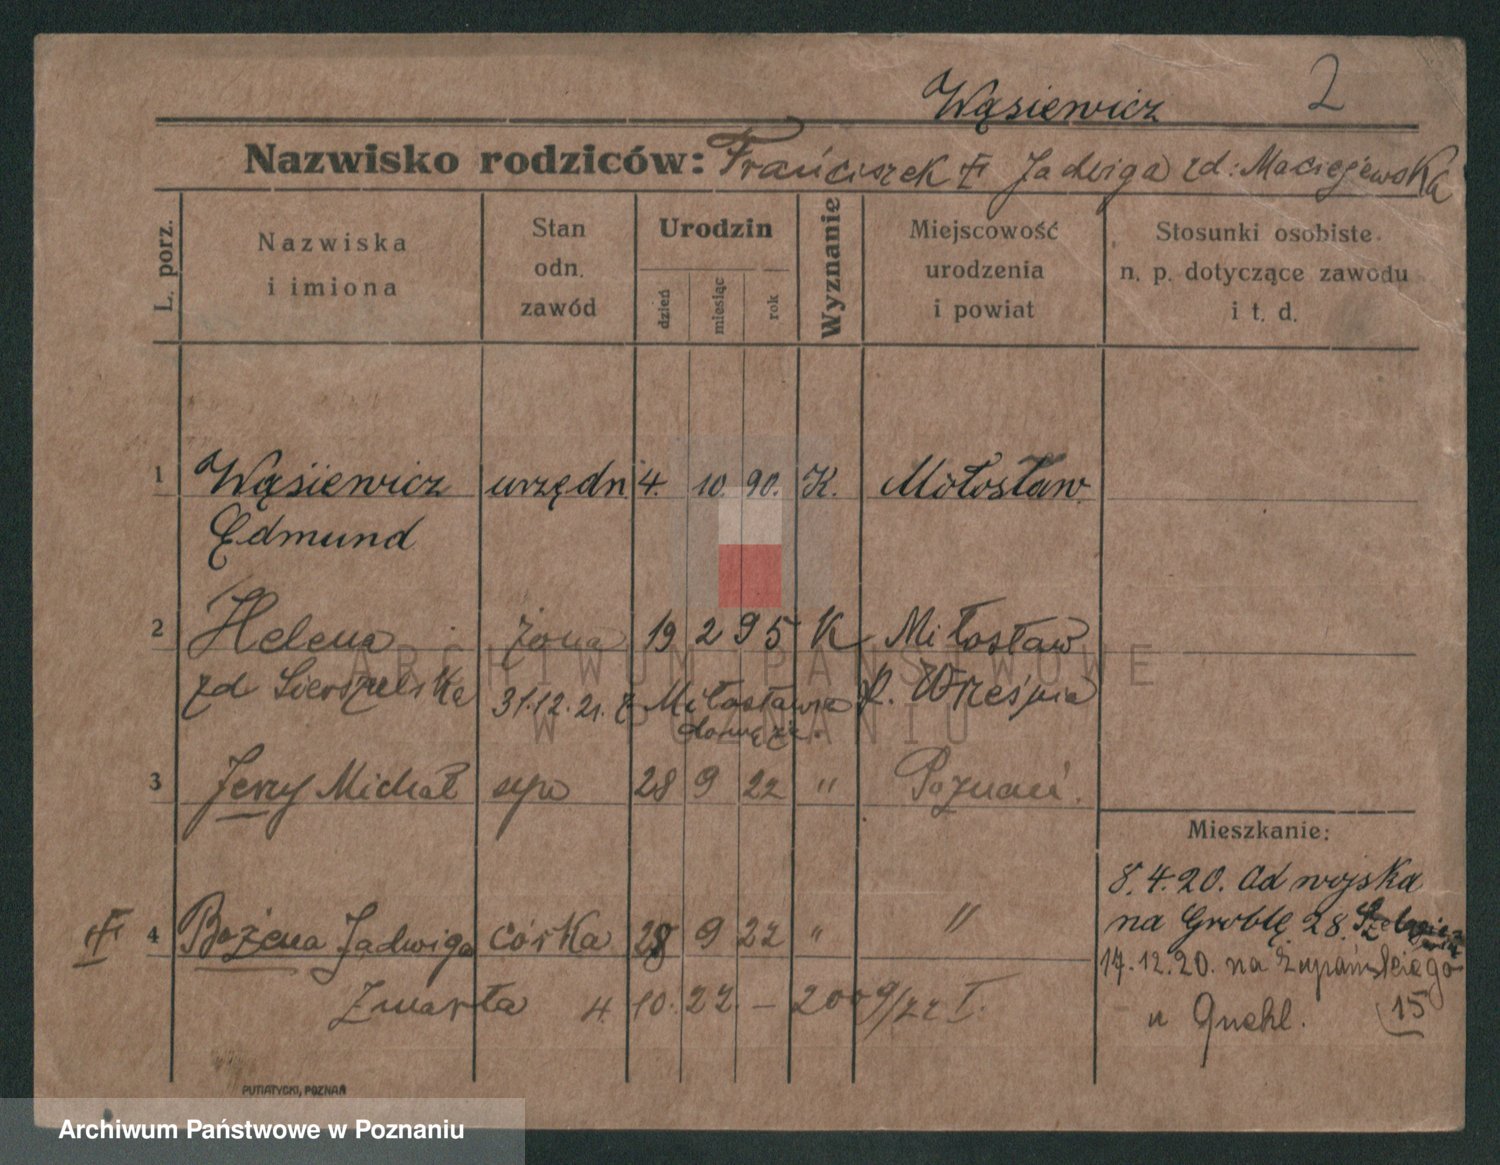 Wąsiewicz 2
Nazwisko rodziców: Franciszek Jadwiga zd: Maciejewska
L. porz.
Nazwiska i imiona
Stan odn. zawód
Urodzin
dzień miesiąc rok
Wyznanie
Miejscowość urodzenia i powiat
Stosunki osobiste n. p. dotyczące zawodu i t. d.
1 Wąsiewicz urzędn 4. 10. 90. K. Miłosław
Edmund
2 Helena żona 19 2 95 K Miłosław
zd 31.12.21. z Miłosławia p. Września
do męża.
3 Jerzy Michał syn 28 9 22 " Poznań.
Mieszkanie:
8.4.20. Od wojska
na Groblę 28.
4 Bożena Jadwiga córka 28 9 22 " "
14.12.20. na Żupańskiego
Zmarła 4. 10. 22 — 2009/22 I.
u 15
PUTIATYCKI, POZNAŃ
ARCHIWUM PAŃSTWOWE
W POZNANIU
Archiwum Państwowe w Poznaniu